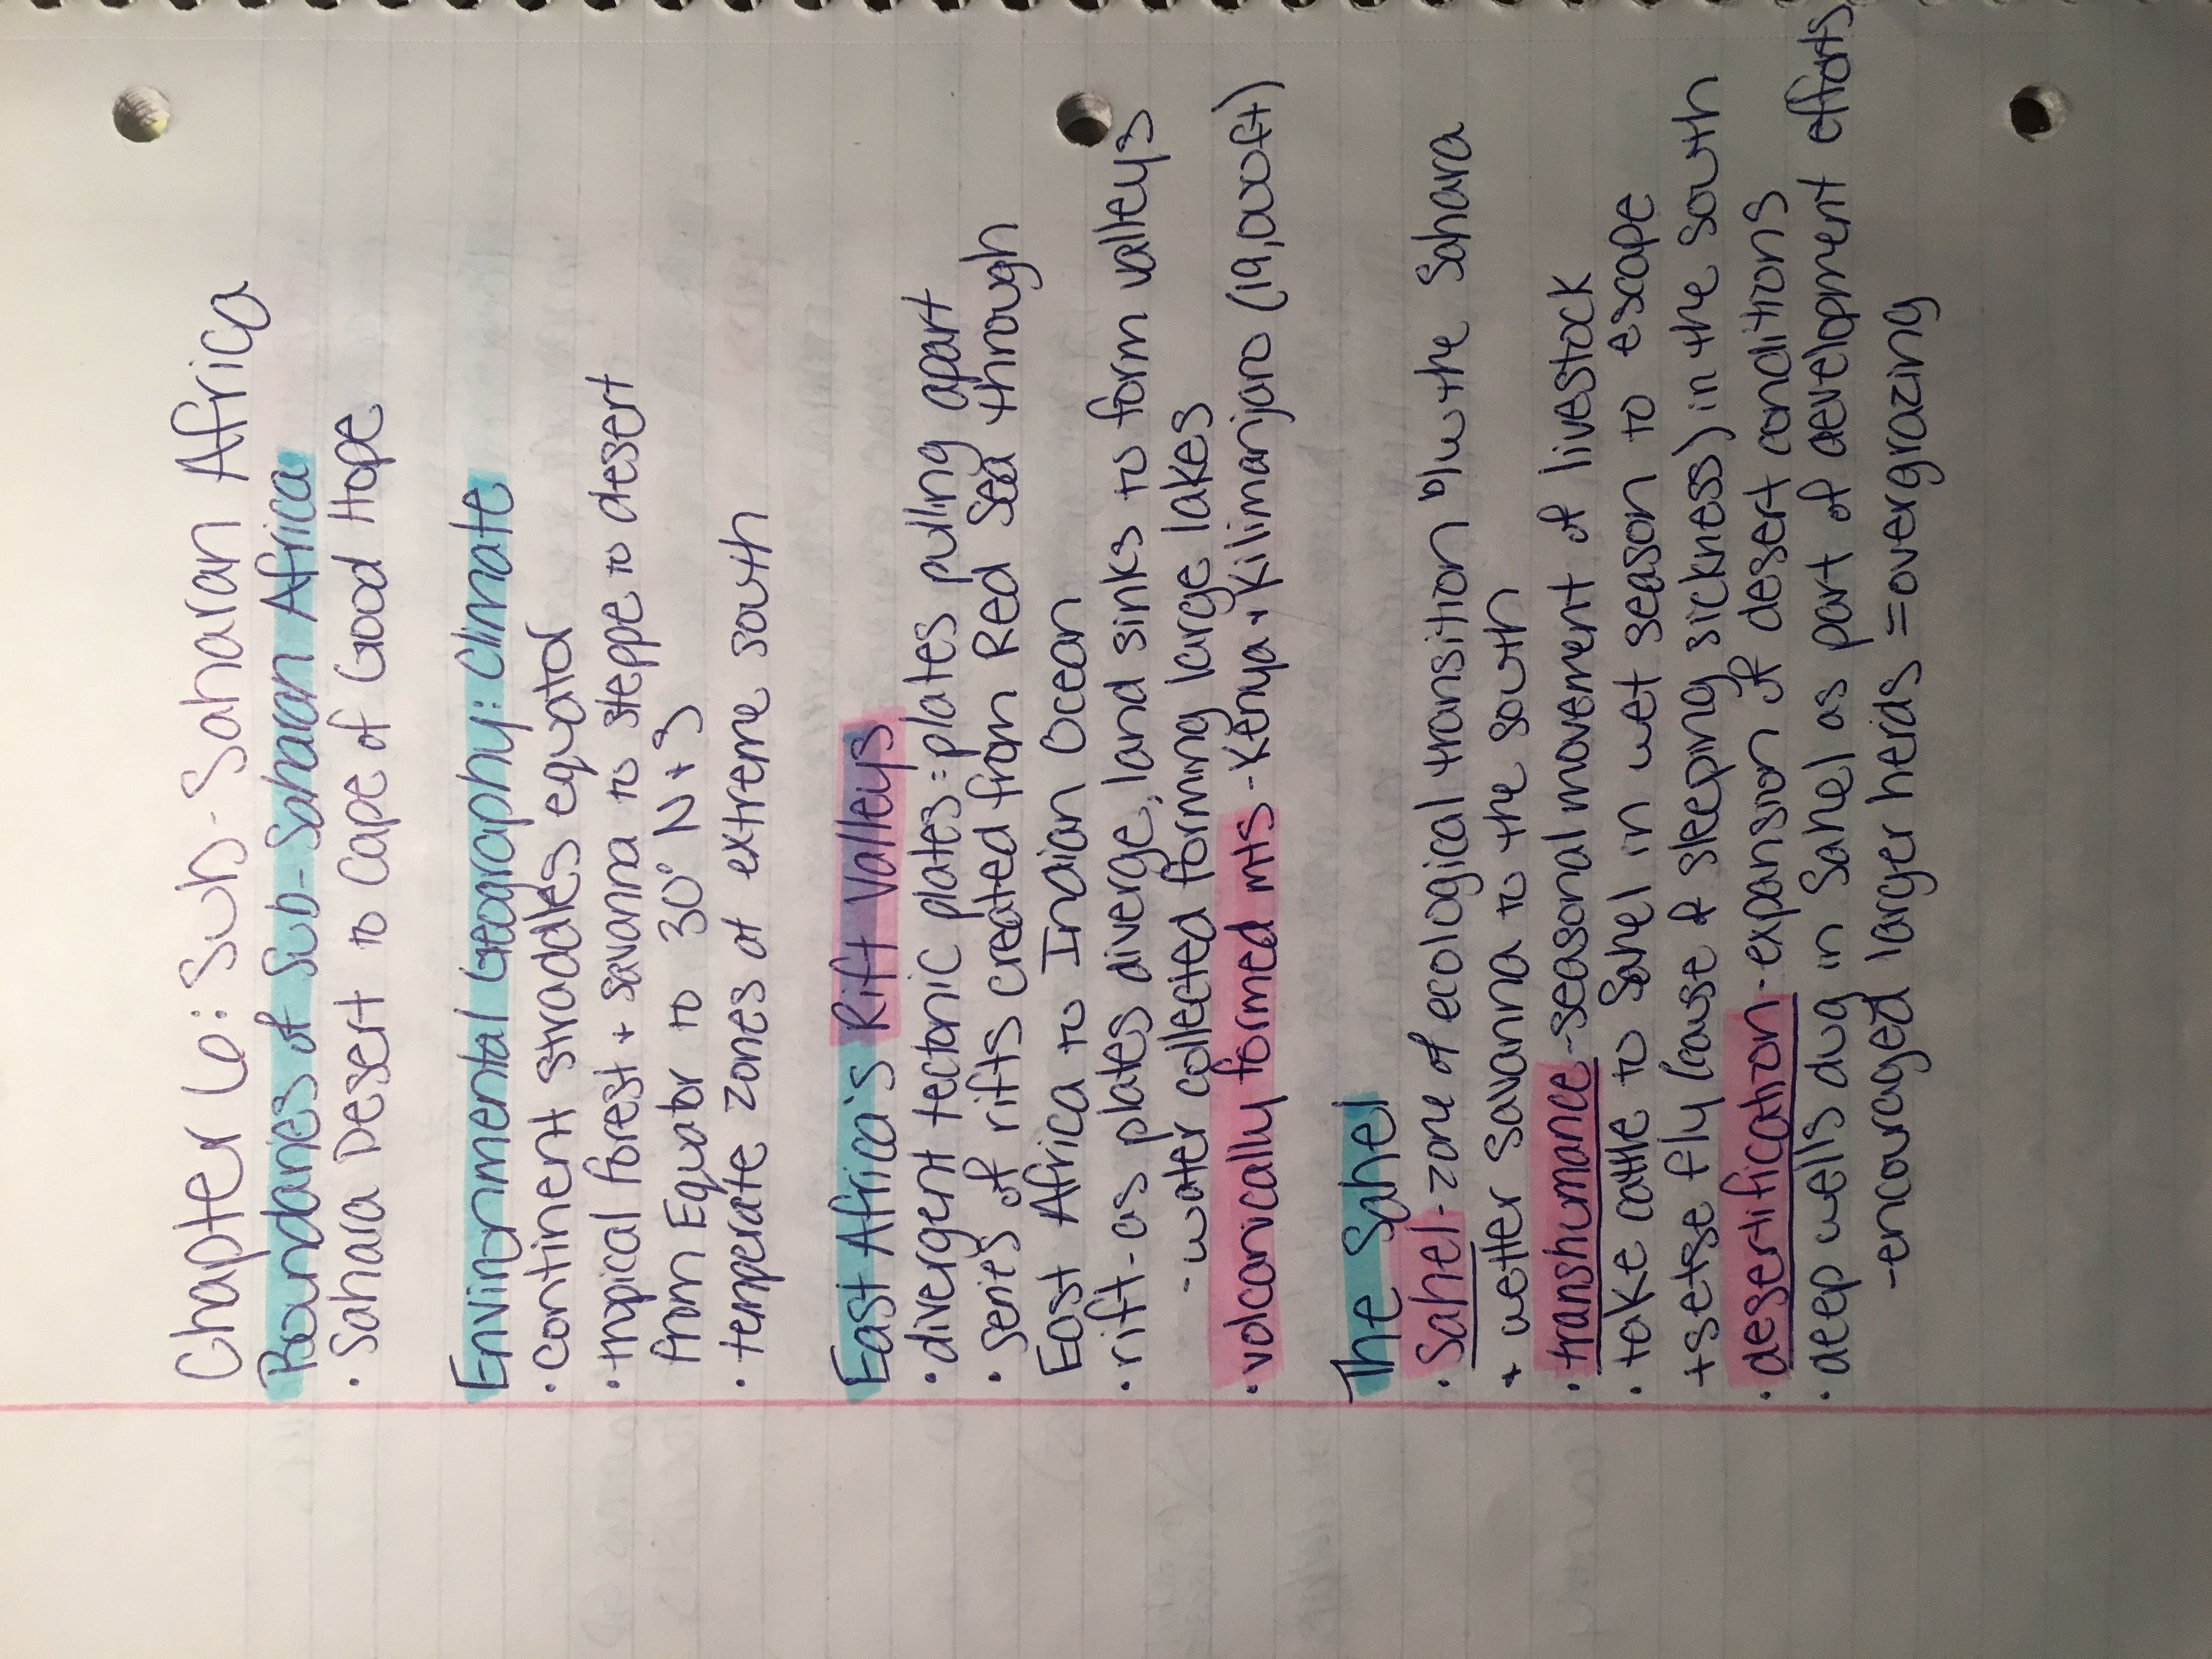 Chapter 6: Sub-Saharan Africa
Boundaries of Sub-Saharan Africa
· Sahara Desert to Cape of Good Hope
Environmental Geography: Climate
· continent straddles equator
· tropical forest + savanna to steppe to desert
from Equator to 30° N + S
· temperate zones at extreme south
East Africa's Rift Valleys
· divergent tectonic plates = plates pulling apart
· series of rifts created from Red Sea through
East Africa to Indian Ocean
· rift - as plates diverge, land sinks to form valleys
- water collected forming large lakes
· volcanically formed mts - Kenya + Kilimanjaro (19,000ft)
The Sahel
· Sahel - zone of ecological transition b/w the Sahara
+ wetter savanna to the south
· transhumance - seasonal movement of livestock
· take cattle to Sahel in wet season to escape
tsetse fly (cause of sleeping sickness) in the south
· desertification - expansion of desert conditions
· deep wells dug in Sahel as part of development efforts
- encouraged larger herds = overgrazing